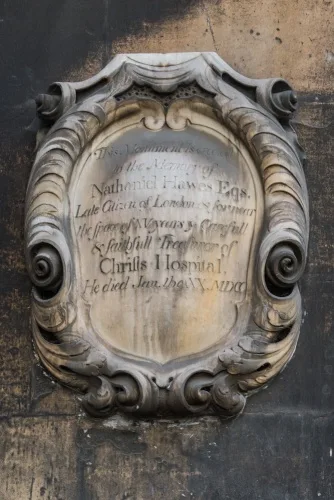 This Monument is
in the Memory of
Nathaniel Hawes Esqr.
Late Citizen of London & for near
the space of Years ye carefull
& faithfull Treasurer of
Christs Hospital,
He died Jan. MDCC